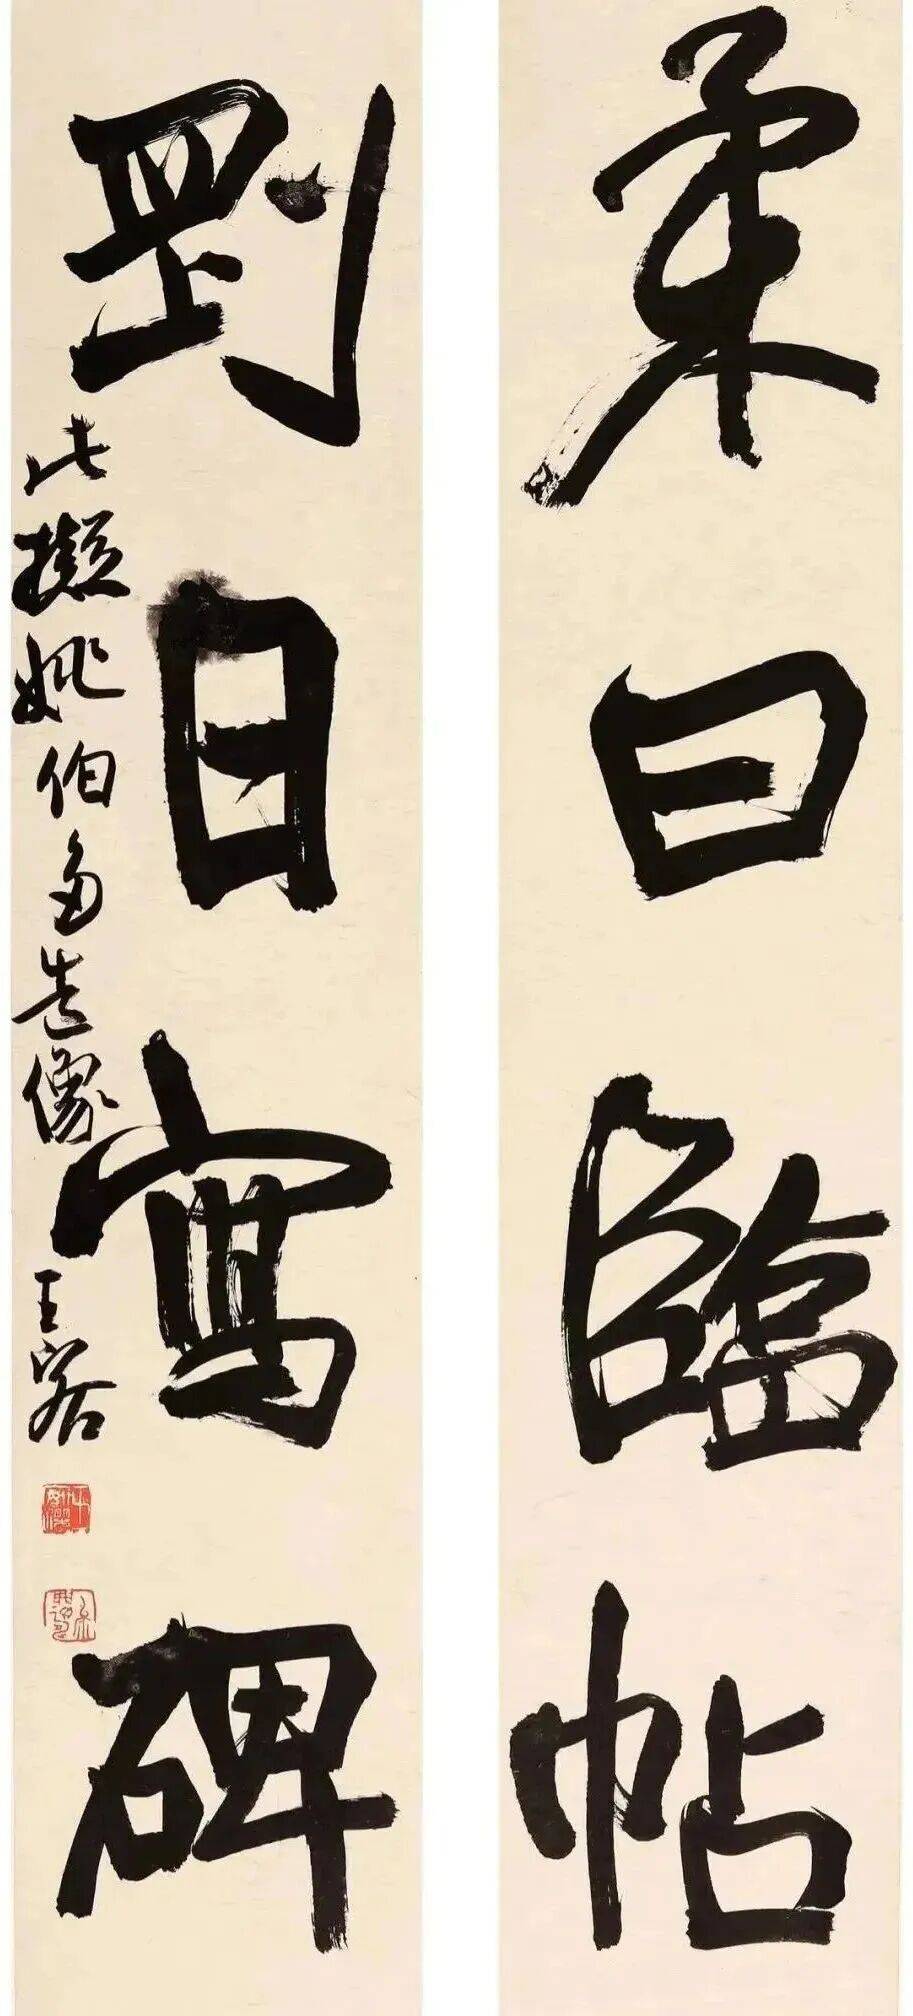 柔日臨帖
剛日寫碑
此擬姚伯多造像 王